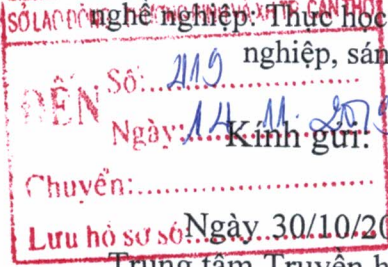 nghề nghiệp: Thực học
nghiệp, sán
ĐẾN
Số: 419
Ngày: 14.11.
Kính gửi:
Chuyển:
Lưu hồ sơ số
Ngày 30/10/20
Trung tâm Truyền h